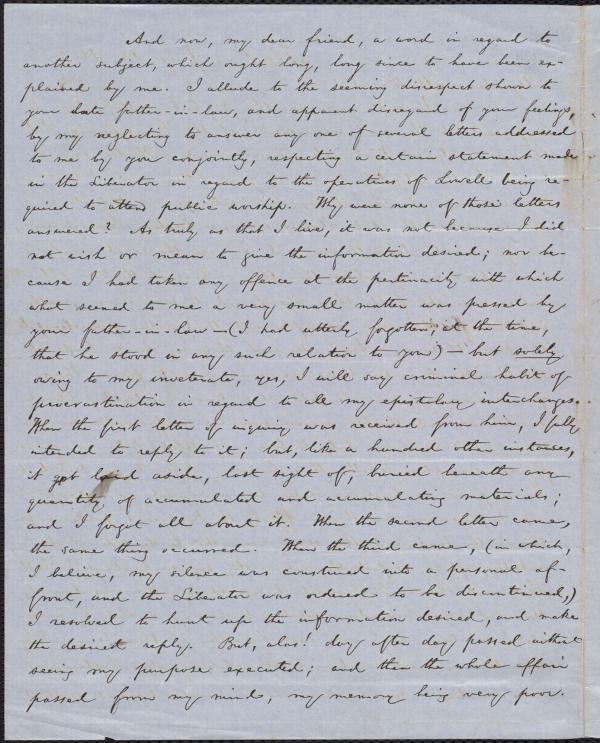 And now, my dear friend, a word in regard to
another subject, which ought long, long since to have been ex-
plained by me. I allude to the seeming disrespect shown to
your late father-in-law, and apparent disregard of your feelings,
by my neglecting to answer any one of several letters addressed
to me by you conjointly, respecting a certain statement made
in the Liberator in regard to the operatives of Lowell being re-
quired to attend public worship. Why were none of those letters
answered? As truly as that I live, it was not because I did
not wish or mean to give the information desired; nor be-
cause I had taken any offence at the pertinacity with which
what seemed to me a very small matter was pressed by
your father-in-law—(I had utterly forgotten, at the time,
that he stood in any such relation to you)—but solely
owing to my inveterate, yes, I will say criminal habit of
procrastination in regard to all my epistolary interchanges.
When the first letter of inquiry was received from him, I fully
intended to reply to it; but, like a hundred other instances,
it got laid aside, lost sight of, buried beneath any
quantity of accumulated and accumulating materials;
and I forgot all about it. When the second letter came,
the same thing occurred. When the third came, (in which,
I believe, my silence was construed into a personal af-
front, and the Liberator was ordered to be discontinued,)
I resolved to hunt up the information desired, and make
the desired reply. But, alas! day after day passed without
seeing my purpose executed; and then the whole affair
passed from my mind, my memory being very poor.